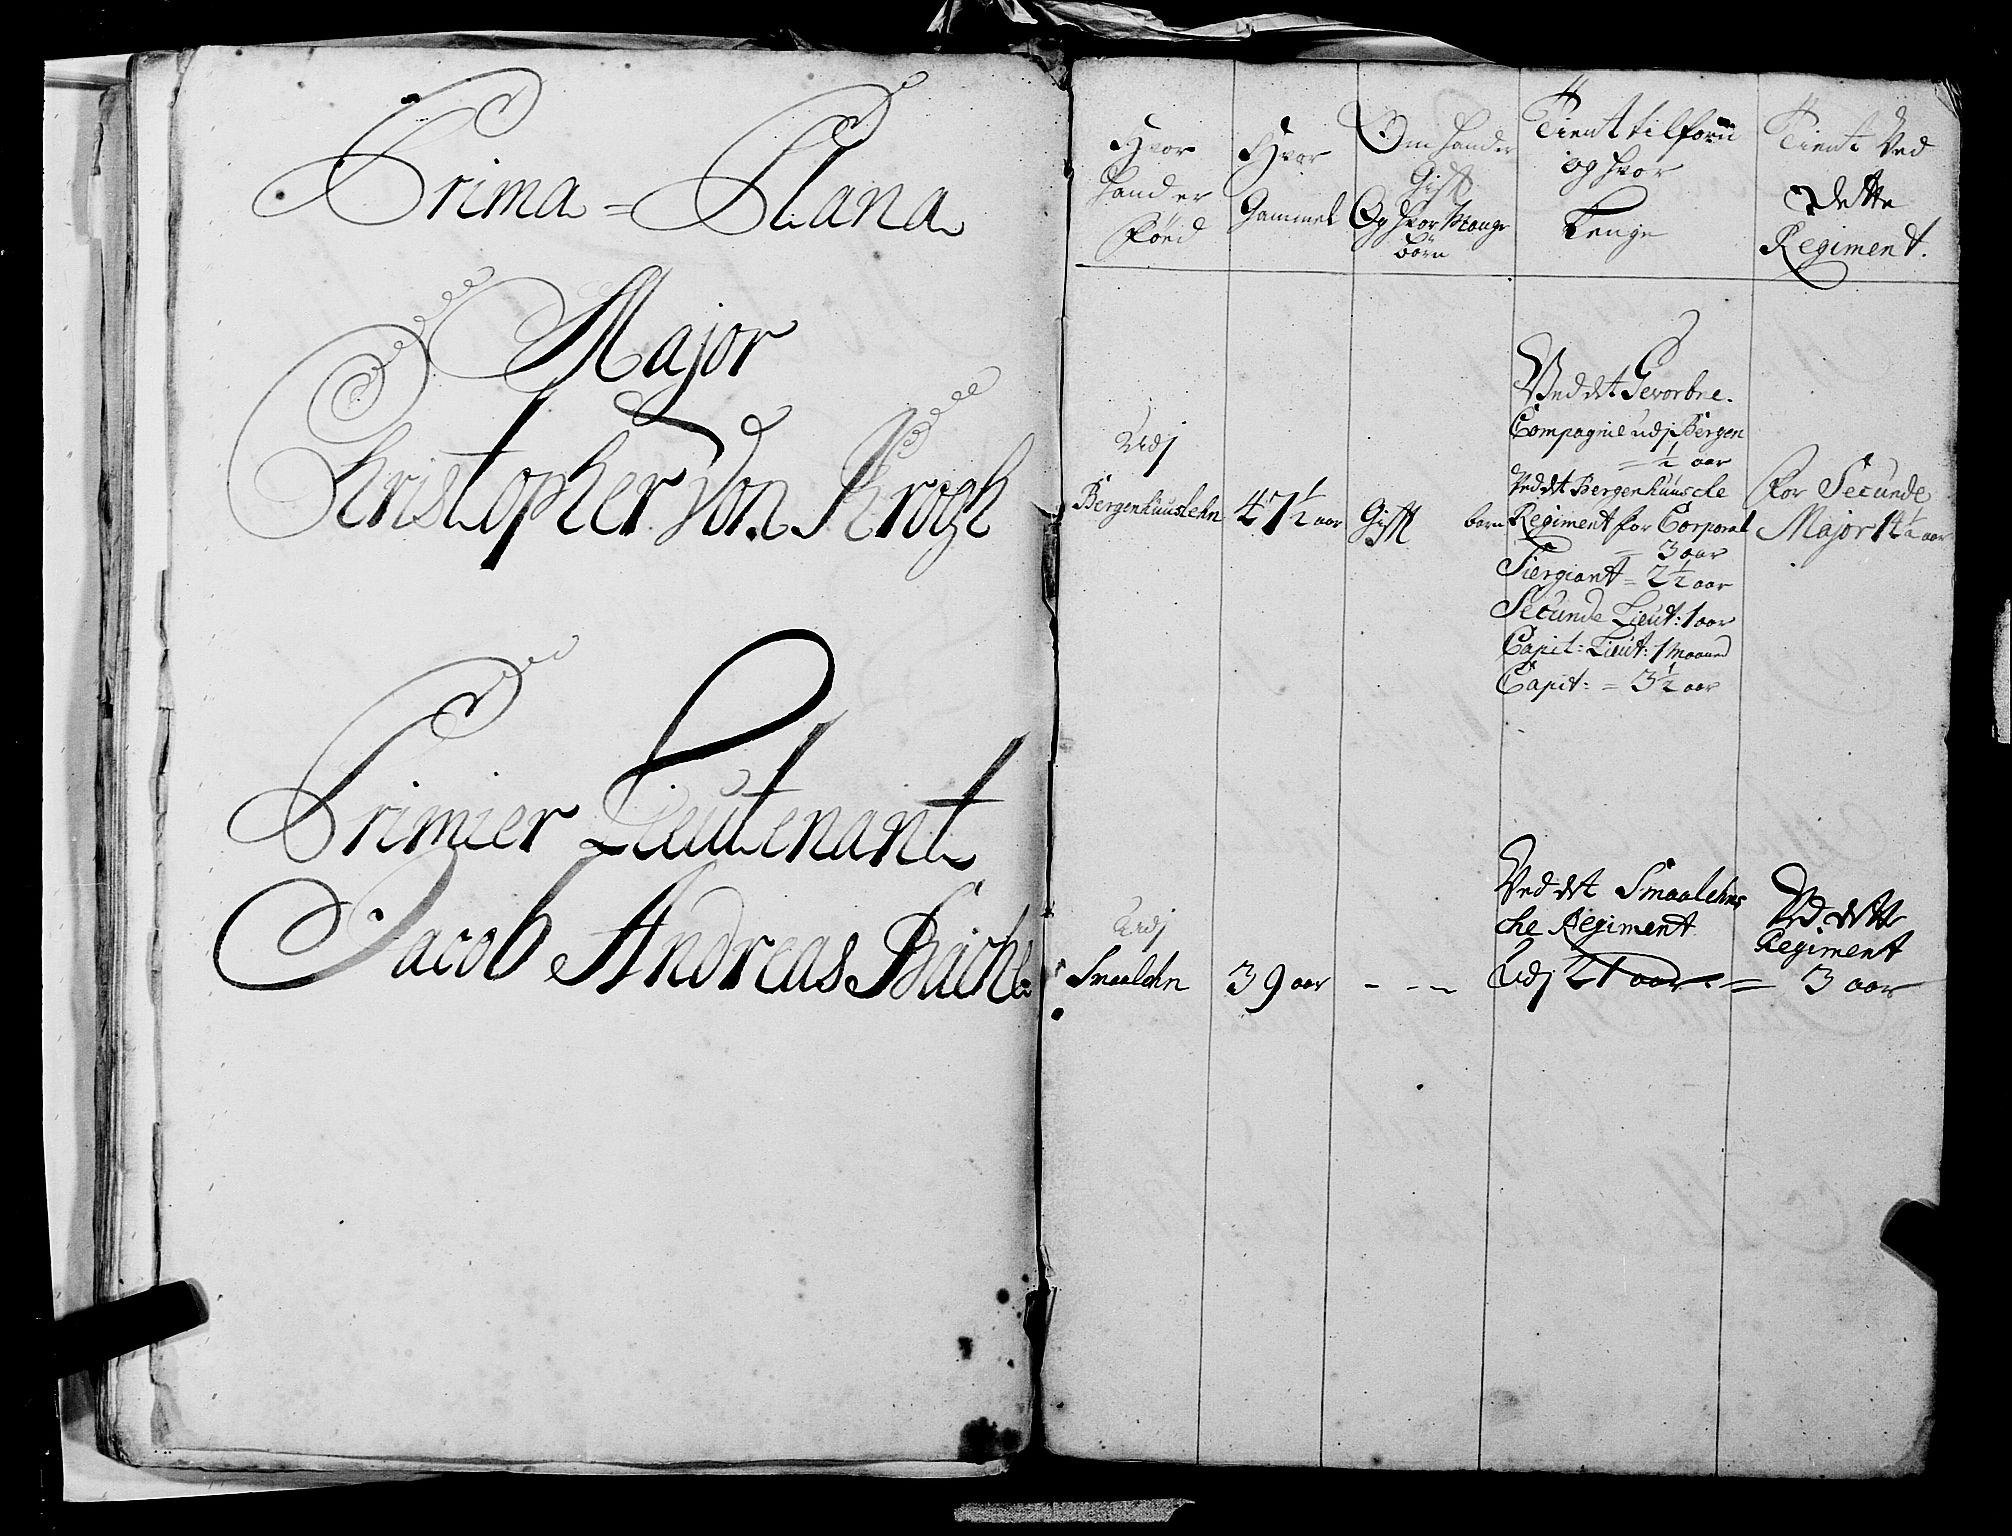 Prima = Plana
Major
Christopher Von Krogh
Primier Lieutenant
Jacob Andreas Bache
Hvor
hand er
Föed
Hvor
Gammel
Om hand er
Gifft
Og hvor Mange
börn
Tient tilforn
og hvor
Lenge
Tient Ved
Dette
Regiment.
Udj
Bergenhuuslehn
47½ aar
Gifft
børn
Ved det Gevorbne
Compagnie udj Bergen
= ½ aar
Ved det Bergenhuusche
Regiment for Corporal
= 3 aar
Siergiant = 2½ aar
Secunde Lieut: 1 aar
Capit: Lieut: 1 Maaned
Capit: = 3½ aar
For Secunde
Major 14½ aar
Udj
Smaalehn
39 aar
- - -
Ved det Smaalehns
che Regiment
Udj 21 aar =
Ved dette
Regiment
3 aar